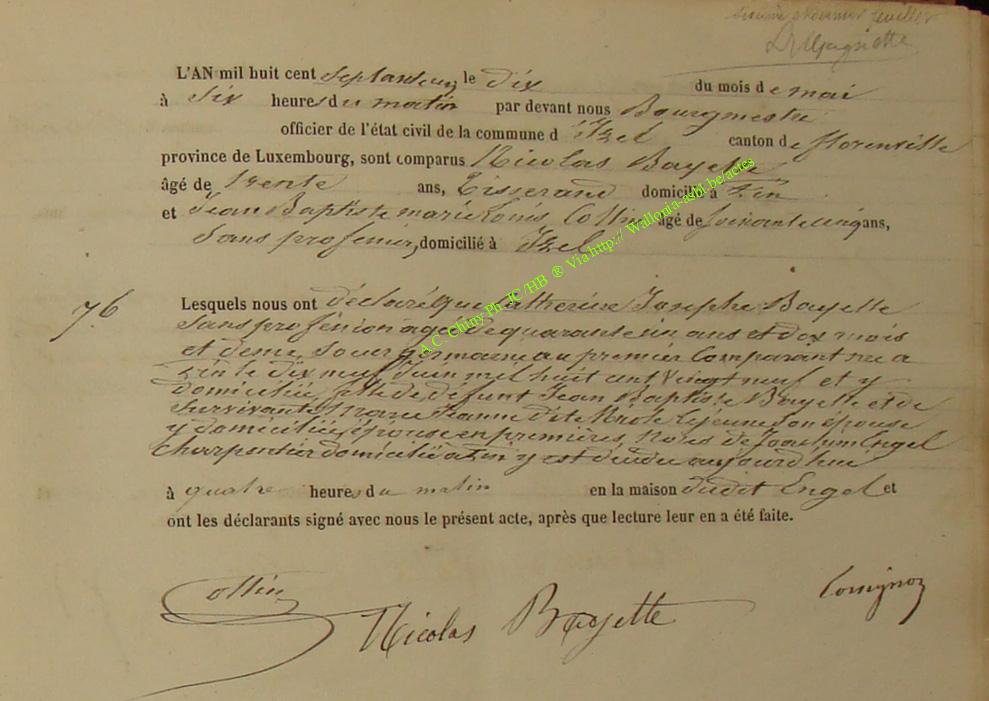 Delagniette
L'AN mil huit cent septante un le dix du mois de mai
à six heures du matin par devant nous Bourgmestre
officier de l'état civil de la commune d'Izel canton de florenville
province de Luxembourg, sont comparus Nicolas Bayette
âgé de trente ans, Tisserand domicilié à Pin
et Jean Baptiste marie Louis Collin âgé de soixante cinq ans,
sans profession, domicilié à Izel
A.C. Chiny Ph. JC /HB ® Via http:// Wallonia-asbl.be/actes
76
Lesquels nous ont déclaré que Catherine Josephe Bayette
sans profession agée de quarante un ans et dix mois
et demi, soeur germaine au premier Comparant née a
Pin le dix neuf Juin mil huit cent vingt neuf et y
domiciliée, fille de défunt Jean Baptiste Bayette et de
survivante Marie Jeanne dite Lejeune son épouse
y domiciliée, épouse en premières Noces de Joachim Engel
Charpentier domicilié a Pin y est décédée aujourd'hui
à quatre heures du matin en la maison dudit Engel et
ont les déclarants signé avec nous le présent acte, après que lecture leur en a été faite.
Collin
Nicolas Bayette